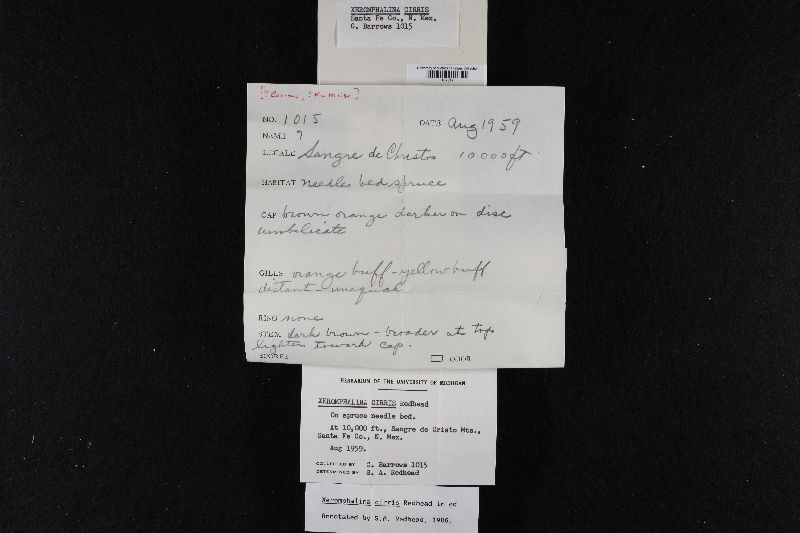 XEROMPHALINA CIRRIS
Santa Fe Co., N. Mex.
C. Barrows 1015
NO. 1015
DATE Aug 1959
NAME ?
LOCALE Sangre de Christos 10000 ft
HABITAT needle bed spruce
CAP brown orange darker on disc
umbilicate
GILLS orange buff - yellow buff
distant - unequal
RING none
STEM dark brown - broader at top
lighter toward cap.
SPORES ODOR
HERBARIUM OF THE UNIVERSITY OF MICHIGAN
XEROMPHALINA CIRRIS Redhead
On spruce needle bed.
At 10,000 ft., Sangre de Cristo Mts.,
Santa Fe Co., N. Mex.
Aug 1959.
COLLECTED BY C. Barrows 1015
DETERMINED BY S. A. Redhead
Xeromphalina cirris Redhead in ed
Annotated by S.A. Redhead, 1986.